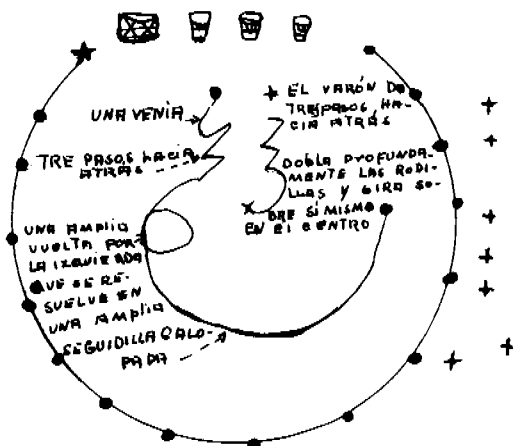 UNA VENIA
TRE PASOS HACIA
ATRÁS
UNA AMPLIA
VUELTA POR
LA IZQUIERDA
QUE SE RE-
SUELVE EN
UNA AMPLIA
SEGUIDILLA GALO-
PADA
EL VARÓN DA
TRES PASOS, HA-
CIA ATRÁS
DOBLA PROFUNDA-
MENTE LAS RODI-
LLAS Y GIRA SO-
BRE SÍ MISMO
EN EL CENTRO